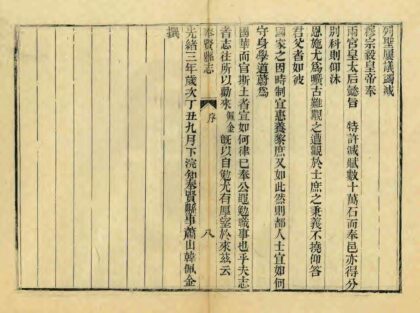 列聖屢議蠲減
穆宗毅皇帝奉
兩宮皇太后懿旨　特許減賦數十萬石而奉邑亦得分
別科則仰沐
恩施尤爲曠古難覯之遭觀於士庶之秉義不撓仰答
君父者如彼
國家之因時制宜惠養黎庶又如此然則都人士宜如何
守身學道蔚爲
國華而官斯土者宜如何律己奉公黽勉職事也乎夫志
者志往所以勸來佩金既以自勉尤有厚望於來茲云
奉賢縣志　序　八
光緒三年歲次丁丑九月下浣知奉賢縣事蕭山韓佩金
撰